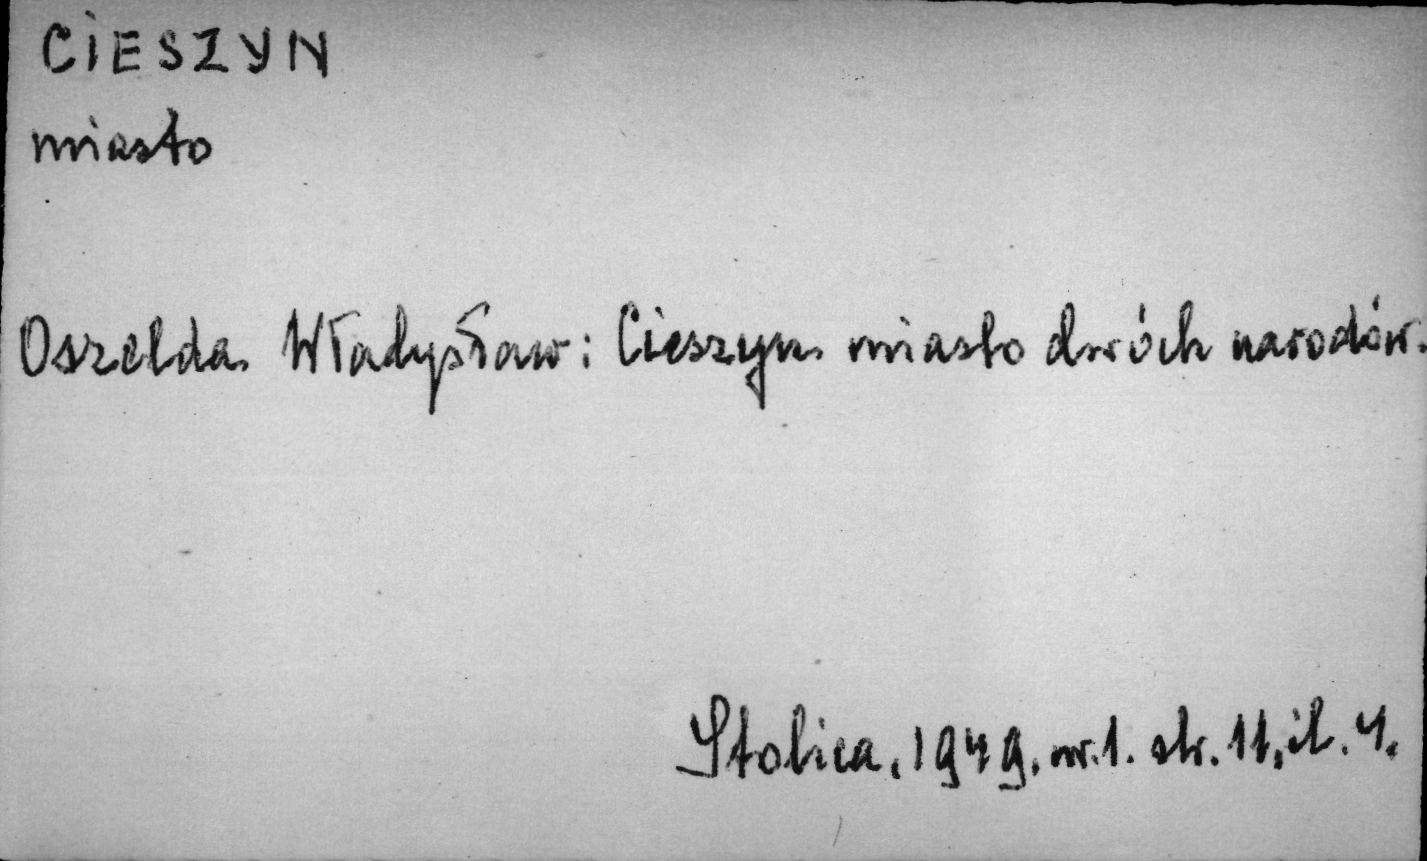 CIESZYN
miasto
Oszelda Władysław: Cieszyn miasto dwóch narodów.
Stolica, 1949. nr. 1. str. 11, il. 4.